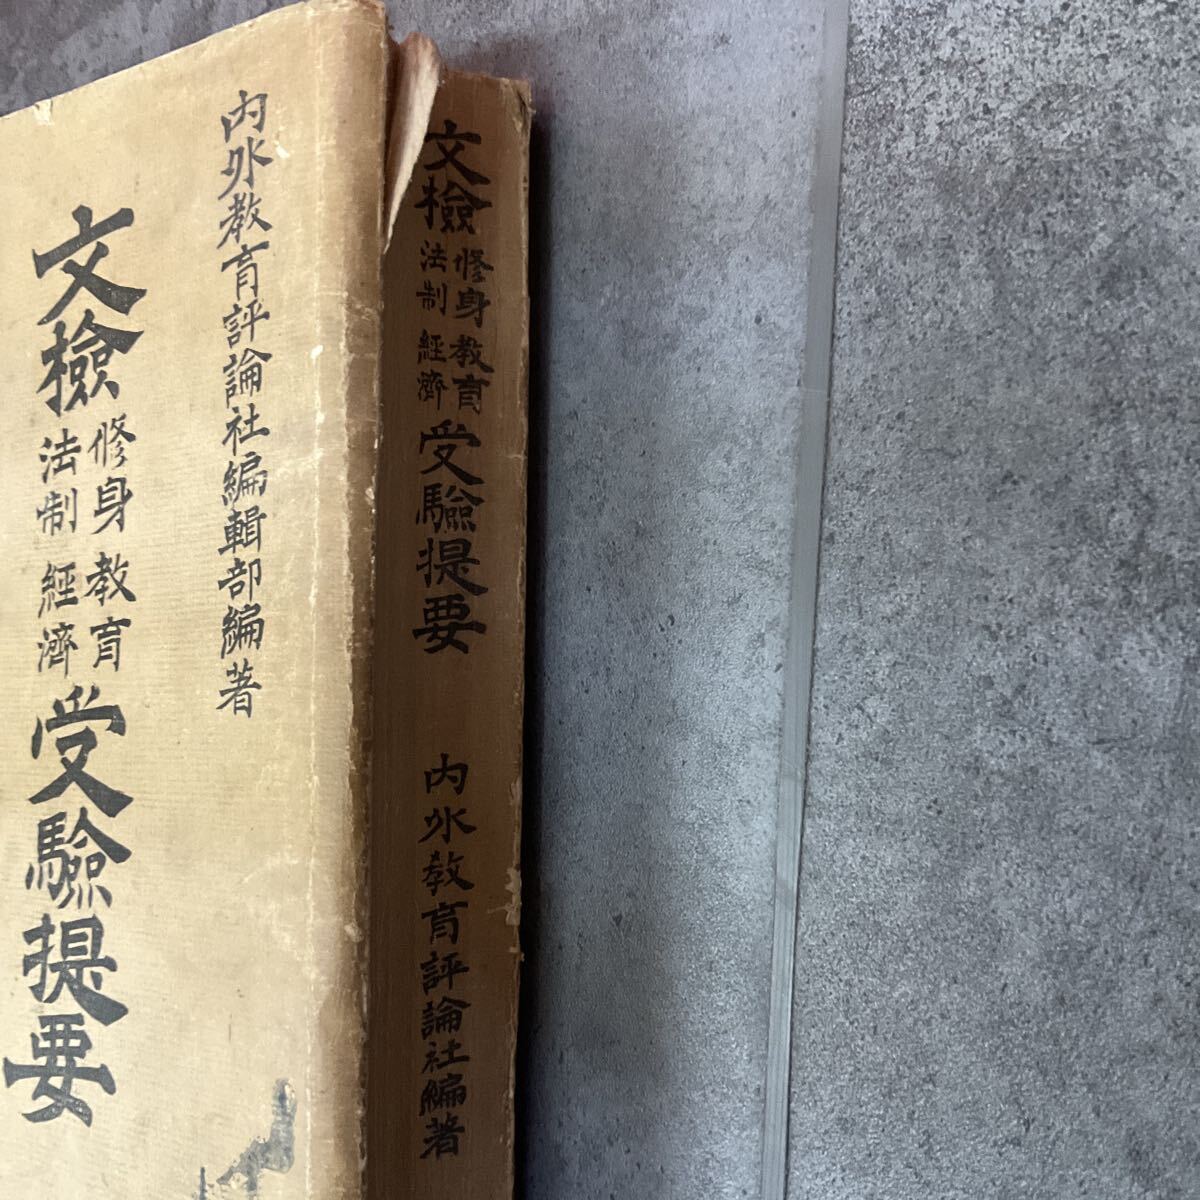 文檢 修身教育 法制經濟 受驗提要
内外教育評論社編著
内外教育評論社編輯部編著
文檢 修身教育 法制經濟 受驗提要